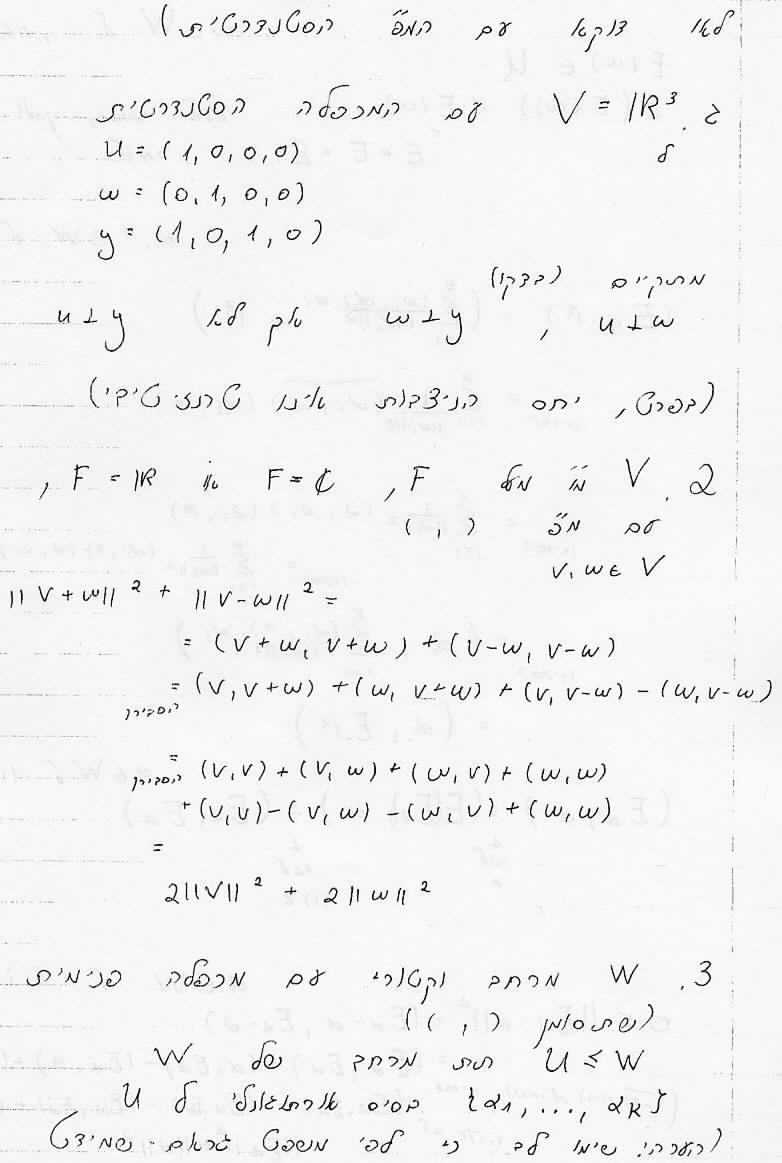 לאו דוקא עם המ"פ הסטנדרטית)
ג. V = ℝ³ עם המכפלה הסטנדרטית
U = (1,0,0,0)
w = (0,1,0,0)
y = (1,0,1,0)
מתקיים (בדקו)
u⊥w , w⊥y אך לא u⊥y
(בפרט, יחס הניצבות אינו טרנזיטיבי)
2. V מ"ו מעל F, F=ℂ או F=ℝ,
עם מ"פ ( , )
v,w∈V
||V+w||² + ||V-w||² =
= (V+w, V+w) + (V-w, V-w)
= (V,V+w) + (w, V+w) + (V, V-w) - (w,V-w)
הסבירו
= (V,V) + (V,w) + (w,V) + (w,w)
הסבירו
+(V,V) - (V,w) - (w,V) + (w,w)
=
2||V||² + 2||w||²
3. W מרחב וקטורי עם מכפלה פנימית
(שתסומן ( , ))
U ≤ W תת מרחב של W
{α1,...,αk} בסיס אורתוגונלי ל U
(הערה: שימו לב כי לפי משפט גראם-שמידט